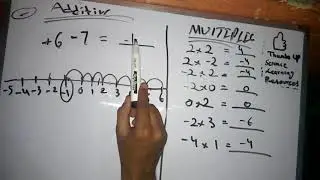 Addition
+6 - 7 = -1
-5 -4 -3 -2 -1 0 1 2 3 6
2 × 2 = 4
2 × -2 = -4
-2 × 2 = -4
-2 × 0 = 0
0 × 2 = 0
-2 × 3 = -6
-4 × 1 = -4
Thumbs Up
Science
Learning
Resources